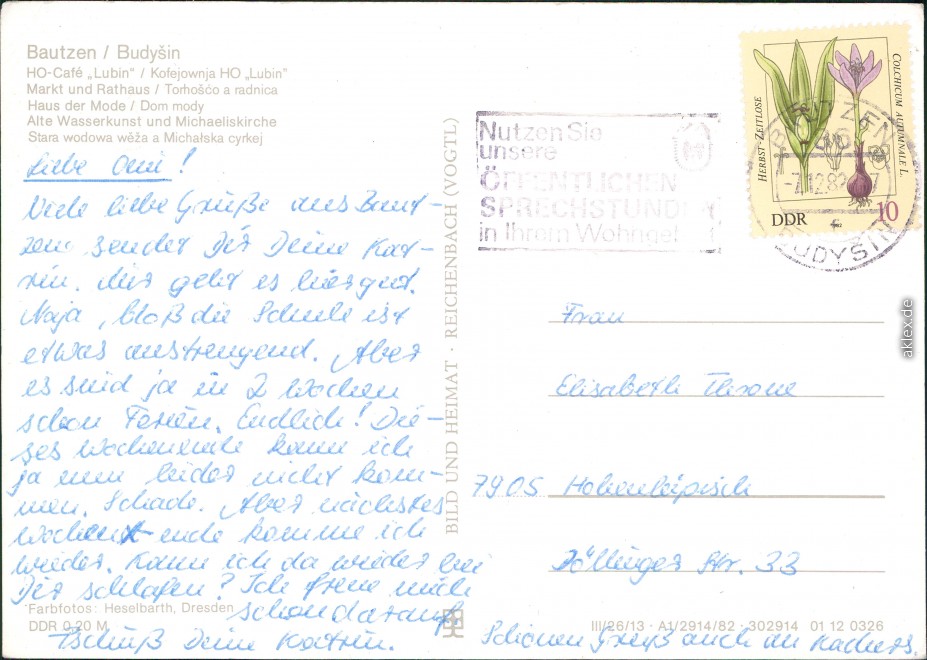 Bautzen / Budyšin
HO-Café „Lubin“ / Kofejownja HO „Lubin“
Markt und Rathaus / Torhošćo a radnica
Haus der Mode / Dom mody
Alte Wasserkunst und Michaeliskirche
Stara wodowa wěža a Michałska cyrkej
Liebe Omi!
Viele liebe Grüße aus Baut-
zen sendet Dir Deine Kat-
rin. Mir geht es hier gut.
Naja, bloß die Schule ist
etwas anstrengend. Aber
es sind ja in 2 Wochen
schon Ferien. Endlich! Die-
ses Wochenende kann ich
ja nun leider nicht kom-
men. Schade. Aber nächstes
Wochenende komme ich
wieder. Kann ich da wieder bei
Dir schlafen? Ich freue mich
schon darauf.
Tschüß Deine Katrin.
Schönen Gruß auch an
Farbfotos: Heselbarth, Dresden
DDR 0,20 M
BILD UND HEIMAT · REICHENBACH (VOGTL)
III/26/13 · A1/2914/82 · 302914 01 12 0326
Nutzen Sie
unsere
ÖFFENTLICHEN
SPRECHSTUNDEN
in Ihrem Wohngebiet
HERBST-ZEITLOSE
COLCHICUM AUTUMNALE L.
DDR 10
1982
BAUTZEN
-7.12.82
BUDYŠIN
Frau
Elisabeth
7905 Hohenleipisch
Döllinger Str. 33
aklex.de